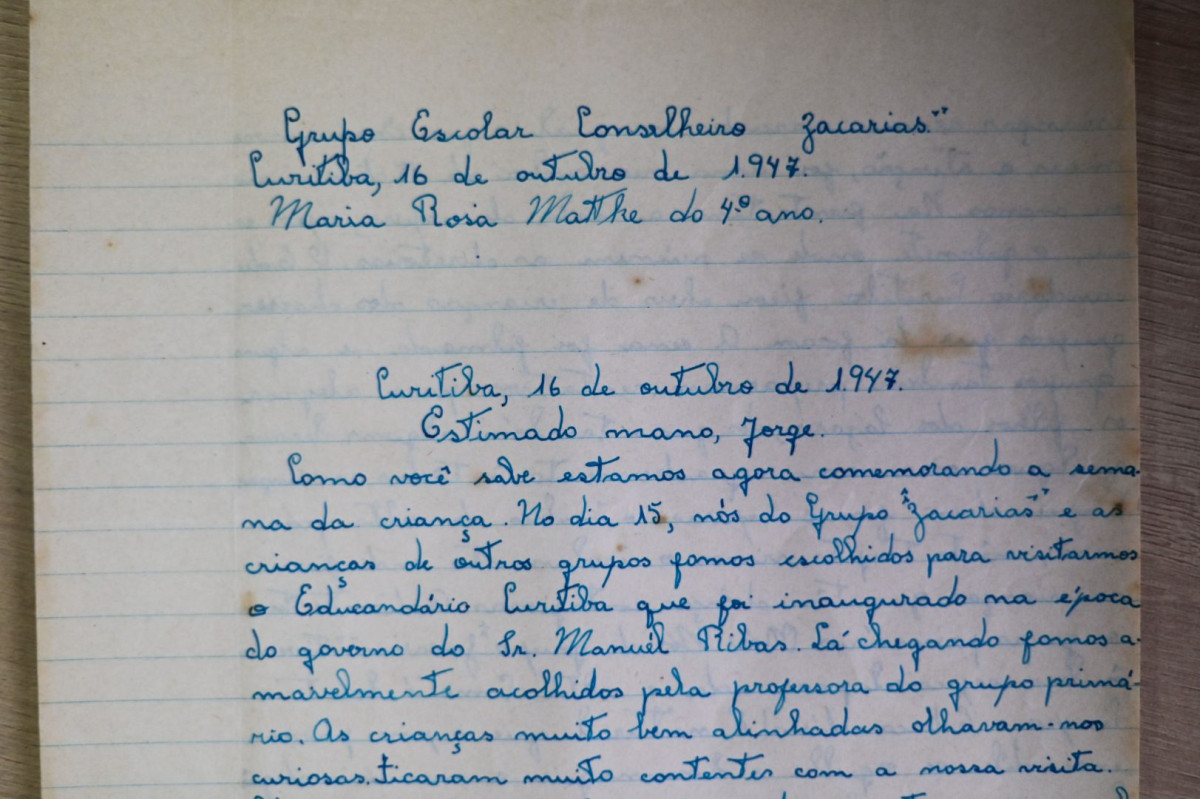 Grupo Escolar Conselheiro Zacarias.""
Curitiba, 16 de outubro de 1.947.
Maria Rosa Matthe do 4.º ano.
Curitiba, 16 de outubro de 1.947.
Estimado mano, Jorge.
Como você sabe estamos agora comemorando a sema-
na da criança. No dia 15, nós do Grupo "Zacarias" e as
crianças de outros grupos fomos escolhidos para visitarmos
o Educandário Curitiba que foi inaugurado na época
do governo do Sr. Manuél Ribas. Lá chegando fomos a-
mavelmente acolhidos pela professora do grupo primá-
rio. As crianças muito bem alinhadas olhavam-nos
curiosas. ficaram muito contentes com a nossa visita.